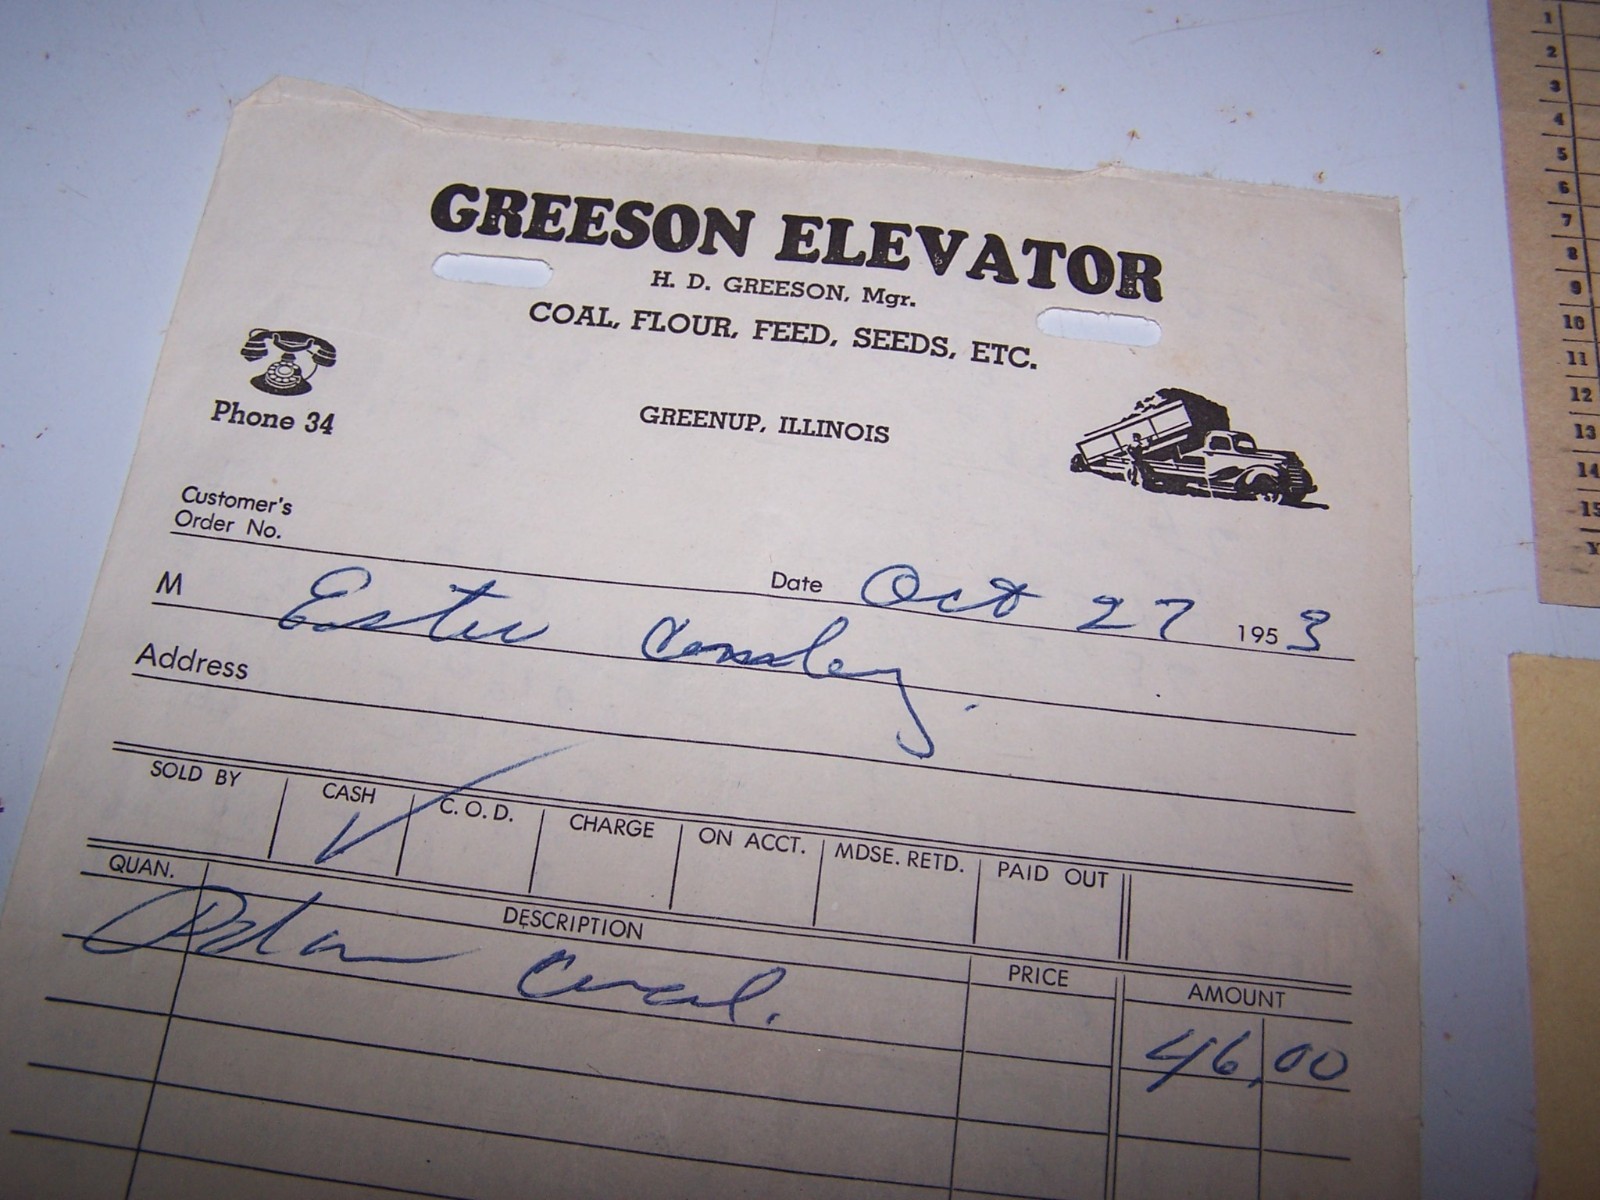 GREESON ELEVATOR
H. D. GREESON, Mgr.
COAL, FLOUR, FEED, SEEDS, ETC.
Phone 34
GREENUP, ILLINOIS
Customer's
Order No.
Date Oct 27 1953
M Ester
Address
SOLD BY CASH C. O. D. CHARGE ON ACCT. MDSE. RETD. PAID OUT
QUAN. DESCRIPTION PRICE AMOUNT
Coal. 46.00
1
2
3
4
5
6
7
8
9
10
11
12
13
14
15